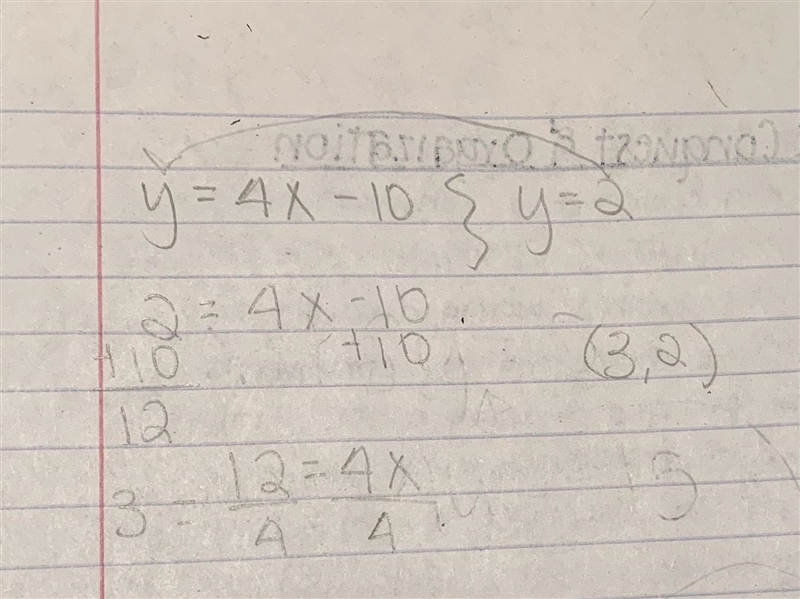 y = 4x - 10 } y = 2
2 = 4x - 10
+10 +10 (3,2)
12
3 = 12/4 = 4x/4